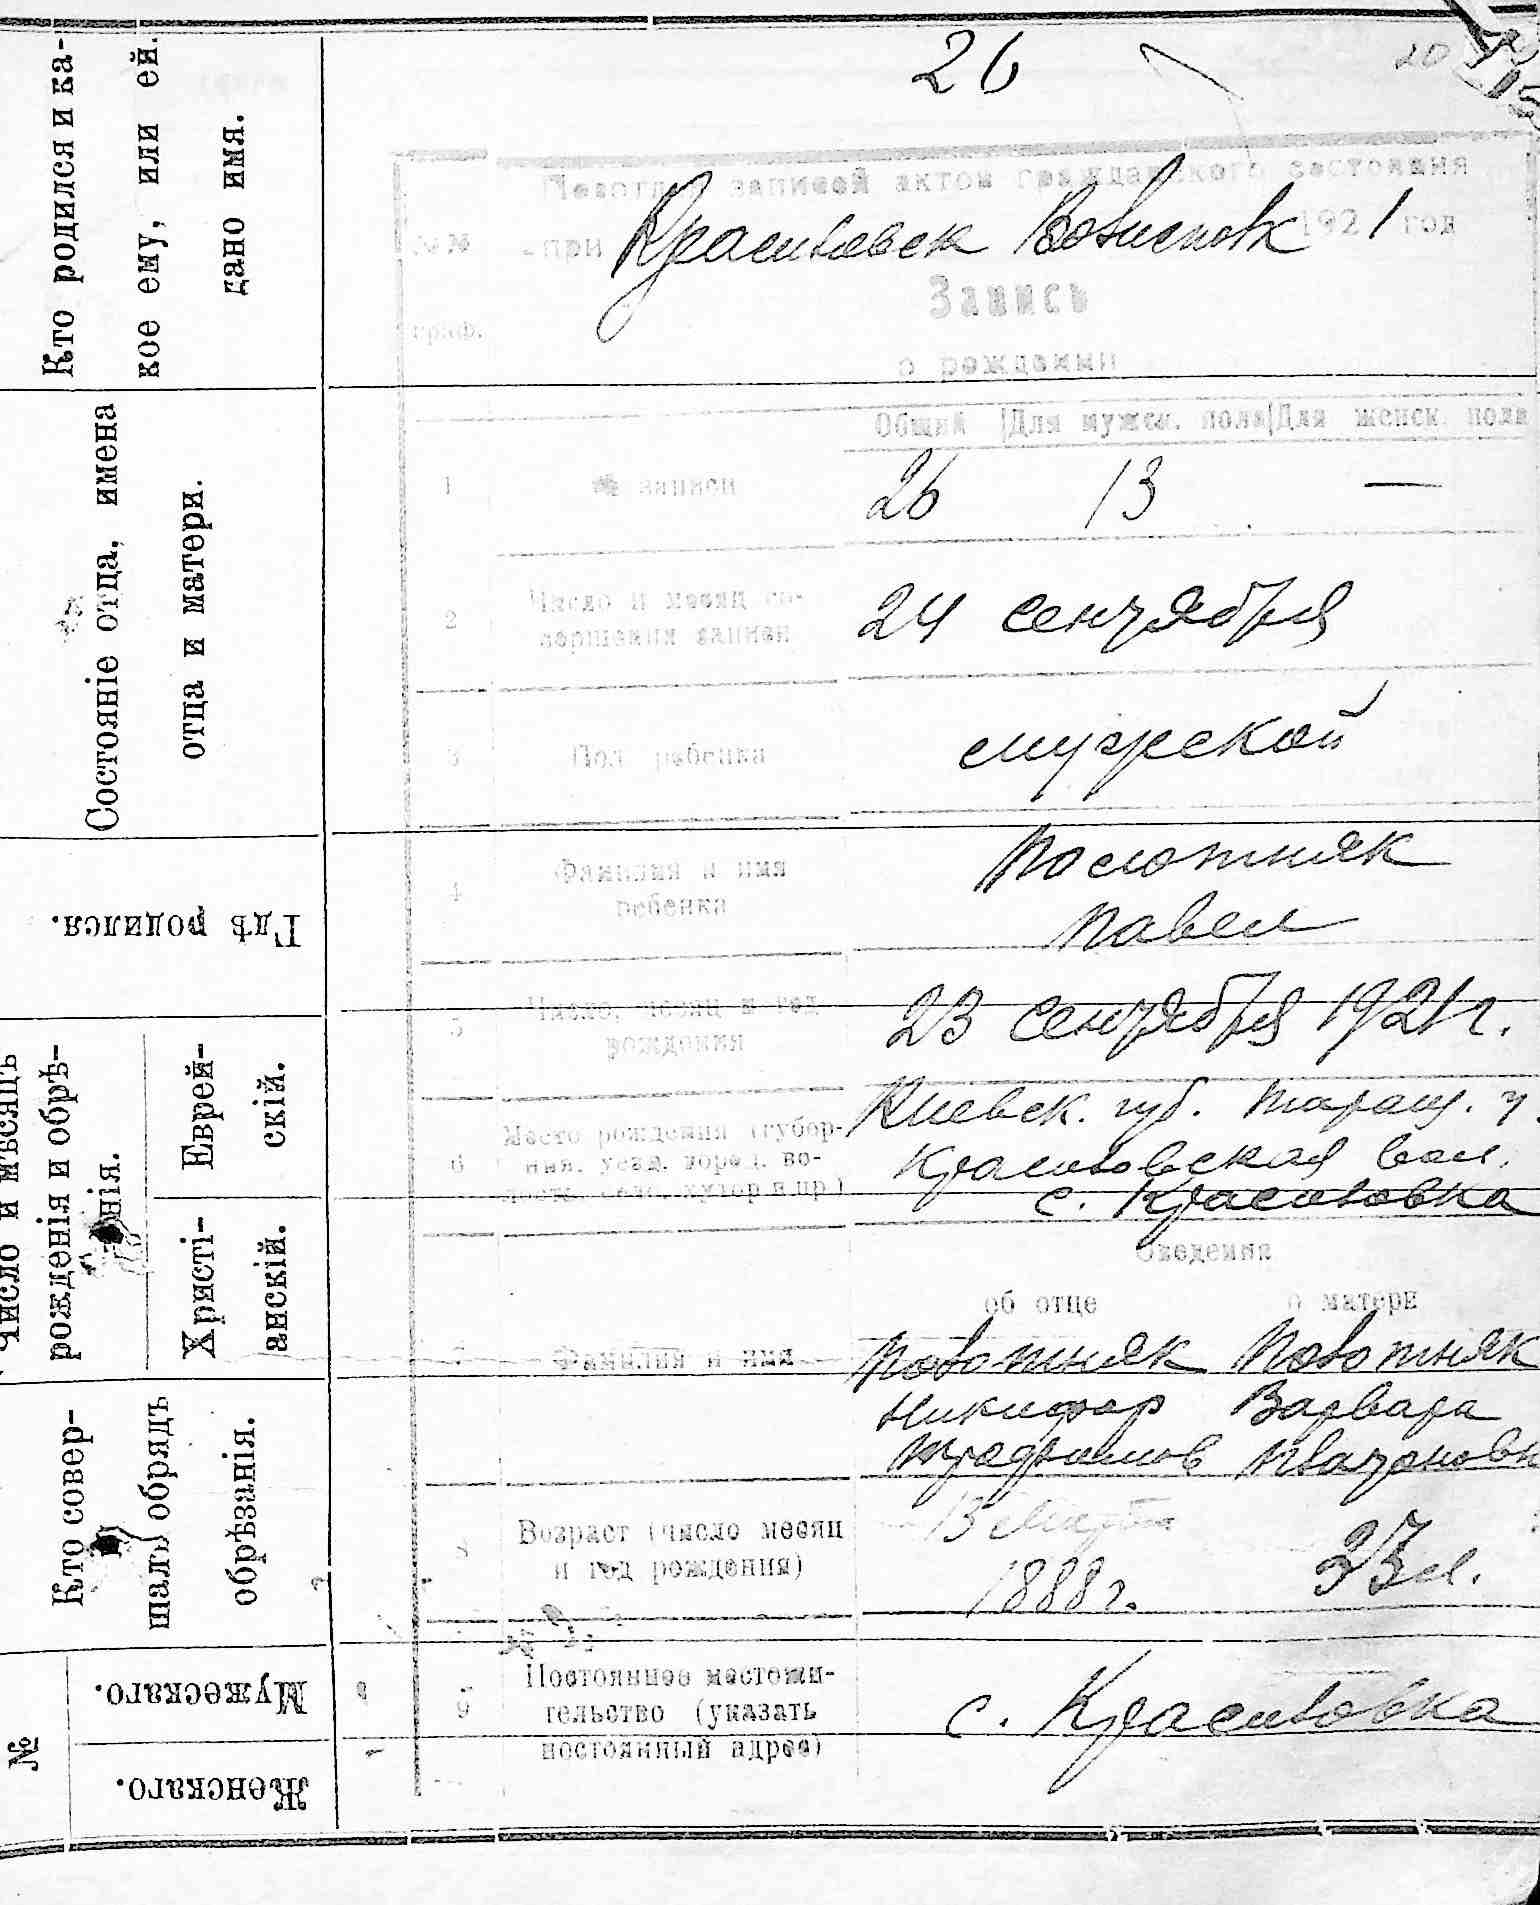 26
Кто родился и ка-
кое ему, или ей.
дано имя.
записей актов гражданского состояния
№№
при 1921 год
Запись
граф.
о рождении
Состояніе отца, имена
отца и матери.
Общий |Для мужск. пола|Для женск. пола
1 № записи 26 13 —
2 Число и месяц со-
вершения записи
24 сентября
3 Пол ребенка мужской
4 Фамилия и имя
ребенка
Павел
Гдѣ родился.
5 Число, месяц и год
рождения
23 сентября 1921 г.
Число и мѣсяцъ
рожденія и обрѣ-
занія.
Еврей-
скій.
Христі-
анскій.
6 Место рождения (губер-
ния, уезд, город, во-
лость, село, хутор и пр.)
Киевск. губ. Таращ. у.
вол.
с.
Сведения
об отце о матери
7 Фамилия и имя
Никифор Варвара
Трофимов
Кто совер-
шалъ обрядъ
обрѣзанія.
8 Возраст (число месяц
и год рождения)
13 Марта
1888 г. 23 л.
9 Постоянное местожи-
тельство (указать
постоянный адрес)
с.
№
Мужескаго.
Женскаго.